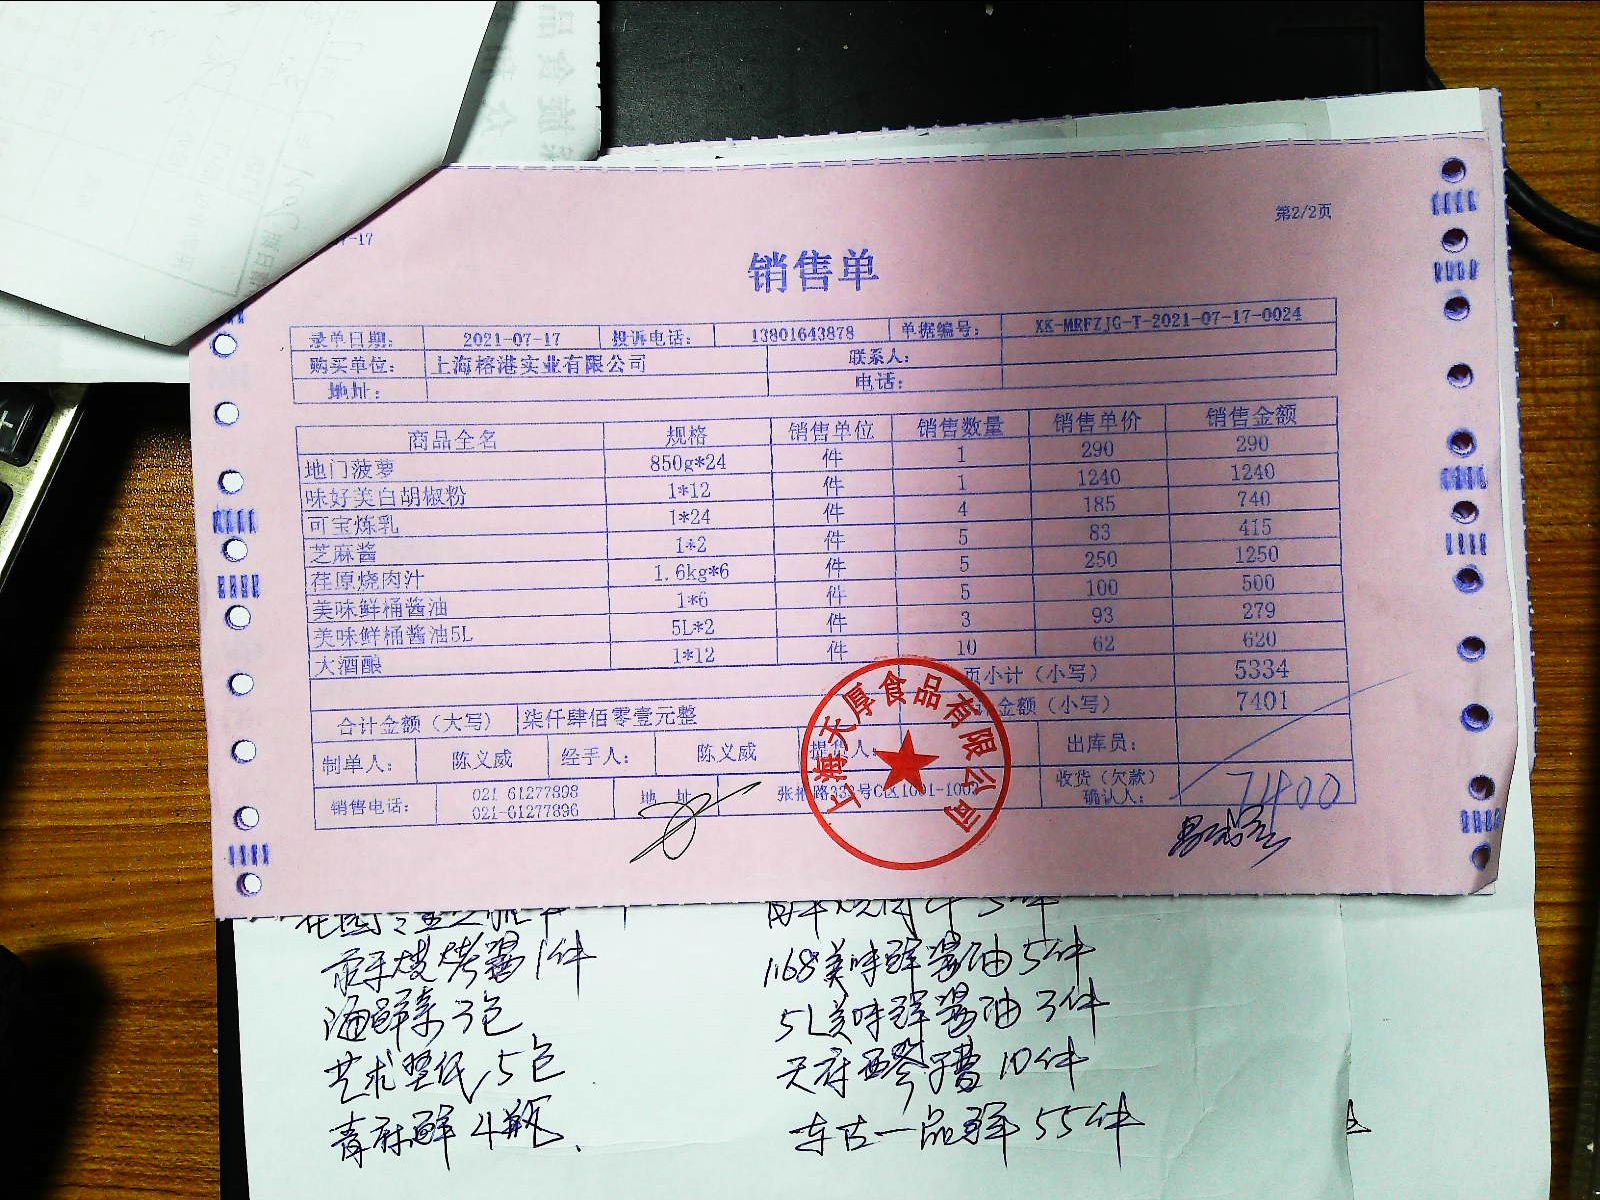 第2/2页
7-17
销售单
录单日期： 2021-07-17 投诉电话： 13801643878 单据编号： XK-MRFZJG-T-2021-07-17-0024
购买单位： 上海榕港实业有限公司 联系人：
地址： 电话：
商品全名 规格 销售单位 销售数量 销售单价 销售金额
地门菠萝 850g*24 件 1 290 290
味好美白胡椒粉 1*12 件 1 1240 1240
可宝炼乳 1*24 件 4 185 740
芝麻酱 1*2 件 5 83 415
荏原烧肉汁 1.6kg*6 件 5 250 1250
美味鲜桶酱油 1*6 件 5 100 500
美味鲜桶酱油5L 5L*2 件 3 93 279
大酒酿 1*12 件 10 62 620
页小计（小写） 5334
合计金额（大写） 柒仟肆佰零壹元整 计金额（小写） 7401
制单人： 陈义威 经手人： 陈义威 提货人： 出库员：
销售电话： 021-61277898 地 址 号C区1001-1002 收货（欠款）
021-61277896 确认人： 7400
上海天厚食品有限公司
烧烤酱1件 1.68美味鲜酱油5件
海鲜素3包 5L美味鲜酱油3件
艺术垫纸5包 10件
4瓶. 东古一品鲜 55件